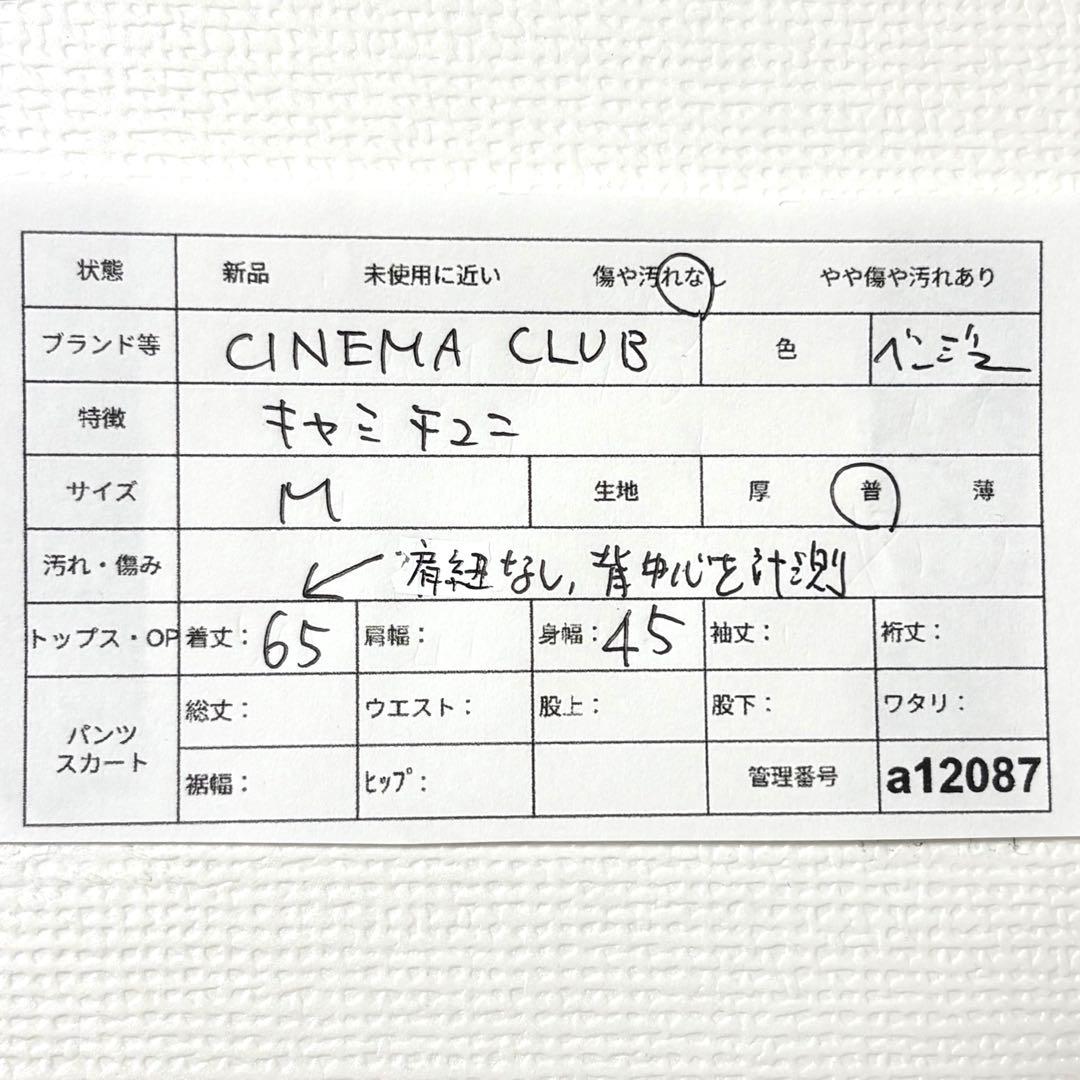 状態 新品 未使用に近い 傷や汚れなし やや傷や汚れあり
ブランド等 CINEMA CLUB 色 ベージュ
特徴 キャミチュニ
サイズ M 生地 厚 普 薄
汚れ・傷み 肩紐なし,背中心を計測
トップス・OP 着丈:65 肩幅: 身幅:45 袖丈: 裄丈:
パンツ スカート 総丈: ウエスト: 股上: 股下: ワタリ:
裾幅: ヒップ: 管理番号 a12087